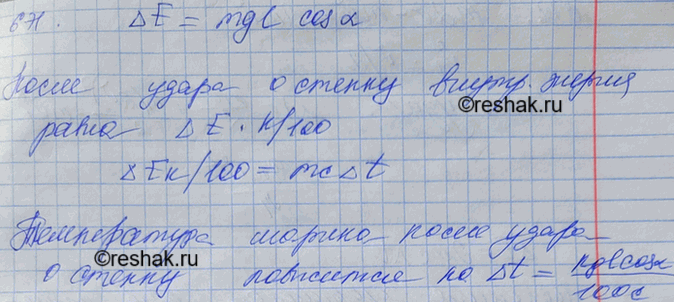 671. ΔE = mgl cos α
После удара о стенку внутр. энергия
©reshak.ru
равна ΔE · к/100
©reshak.ru
ΔEк/100 = mcΔt
Температура шарика после удара
о стенку повысится на Δt = кglcosα/100c
©reshak.ru